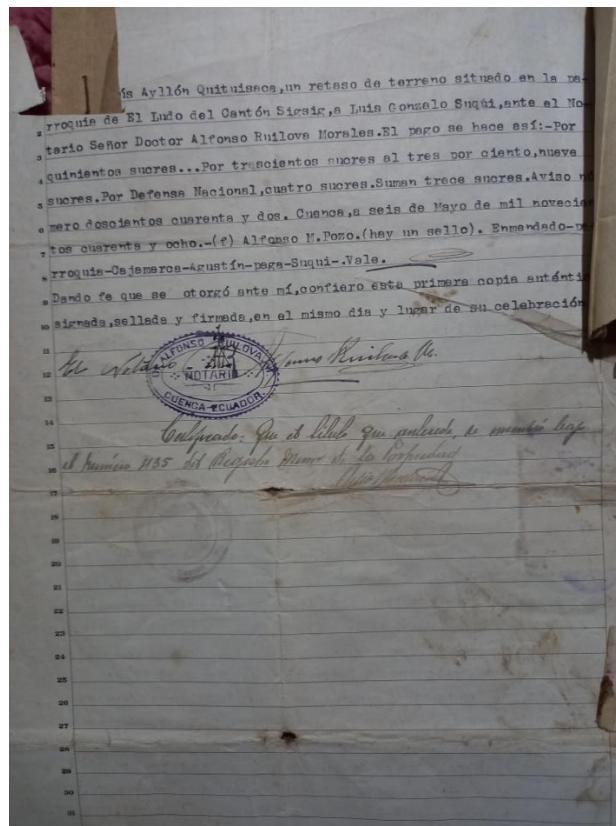 ís Ayllón Quituisaca,un retaso de terreno situado en la pa-
2 rroquia de El Ludo del Cantón Sigsig,a Luis Gonzalo Suqui,ante el No-
3 tario Señor Doctor Alfonso Ruilova Morales.El pago se hace así:-Por
4 quinientos sucres...Por trescientos sucres al tres por ciento,nueve
5 sucres.Por Defensa Nacional,cuatro sucres.Suman trece sucres.Aviso nú
6 mero doscientos cuarenta y dos. Cuenca,a seis de Mayo de mil novecien
7 tos cuarenta y ocho.-(f) Alfonso M.Pozo.(hay un sello). Enmendado-pa-
8 rroquia-Cajamarca-Agustín-paga-Suqui-.Vale.
9 Dando fe que se otorgó ante mí,confiero esta primera copia auténti
10 signada,sellada y firmada,en el mismo día y lugar de su celebración
11
12 El Notario Alfonso Ruilova M.
ALFONSO RUILOVA M.
NOTARIO
CUENCA-ECUADOR
13
14
15 Certificado: Que el título que antecede, se inscribió bajo
16 el número 1135 del Registro Menor de la Propiedad
17
18
19
20
21
22
23
24
25
26
27
28
29
30
31